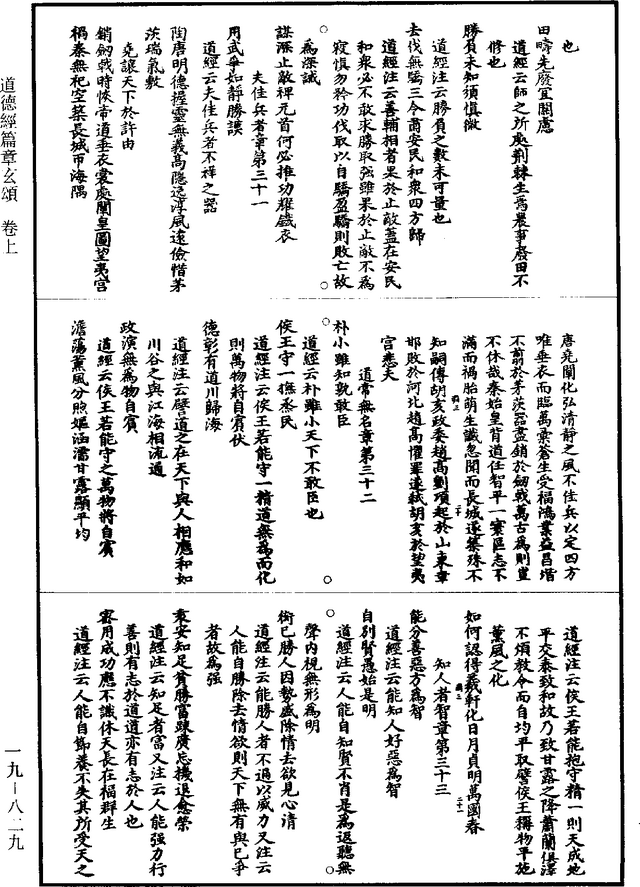 道德經篇章玄頌　卷上
也
田疇先廢宜關慮
道經云師之所處荆棘生焉農事廢田不
修也
勝負未知須慎微
道經注云勝負之數未可量也
去伐無驕三令肅安民和衆四方歸
道經注云善輔相者果於止敵蓋在安民
和衆必不敢求勝取強雖果於止敵不爲
寇慎勿矜功伐取以自驕盈驕則敗亡故
爲深誡
謀深止敵裨元首何必推功耀戩衣
夫佳兵者章第三十一
用武爭如靜勝謨
道經云夫佳兵者不祥之器
陶唐明德握靈無義高隱逸淳風遠儉惜茅
茨瑞氣敷
堯讓天下於許由
銷劒戟時恢帝道垂衣裳處闡皇圖望夷宮
禍秦無杞空築長城帀海隅
唐堯闡化弘清靜之風不佳兵以定四方
唯垂衣而臨萬彙蒼生受福鴻業益昌堦
不翦於茅茨器盡銷於劒戟萬古爲則豈
不休哉秦始皇背道任智平一寰區志不
滿而禍胎萌生讖忽聞而長城遂築殊不
知嗣傳胡亥政委趙高劉項起於山東章
邯敗於河北趙高懼罪遂弒胡亥於望夷
宮悲夫
道常無名章第三十二
朴小雖知孰敢臣
道經云朴雖小天下不敢臣也
侯王守一撫烝民
道經注云侯王若能守一精道無爲而化
則萬物將自賓伏
德彰有道川歸海
道經注云譬道之在天下與人相應和如
川谷之與江海相流通
政演無爲物自賓
道經云侯王若能守之萬物將自賓
澹蕩薰風分煦嫗涵濡甘露顯平均
道經注云侯王若能抱守精一則天成地
平交泰致和故乃致甘露之降蕭蘭俱澤
不煩教令而自均平取譬侯王稱物平施
薰風之化
如何認得羲軒化日月貞明萬國春
知人者智章第三十三
能分善惡方爲智
道經注云能知人好惡爲智
自別賢愚始是明
道經注云人能自知賢不肖是爲返聽無
聲內視無形爲明
銜已勝人因勢盛除情去欲見心清
道經注云能勝人者不過以威力又注云
人能自勝除去情欲則天下無有與已爭
者故爲强
袁安知足貧勝富疎廣忘機退愈榮
道經注云知足者富又注云人能强力行
善則有志於道道亦有志於人也
審用成功應不讖休天長在福羣生
道經注云人能自節養不失其所受天之
一九－八二九